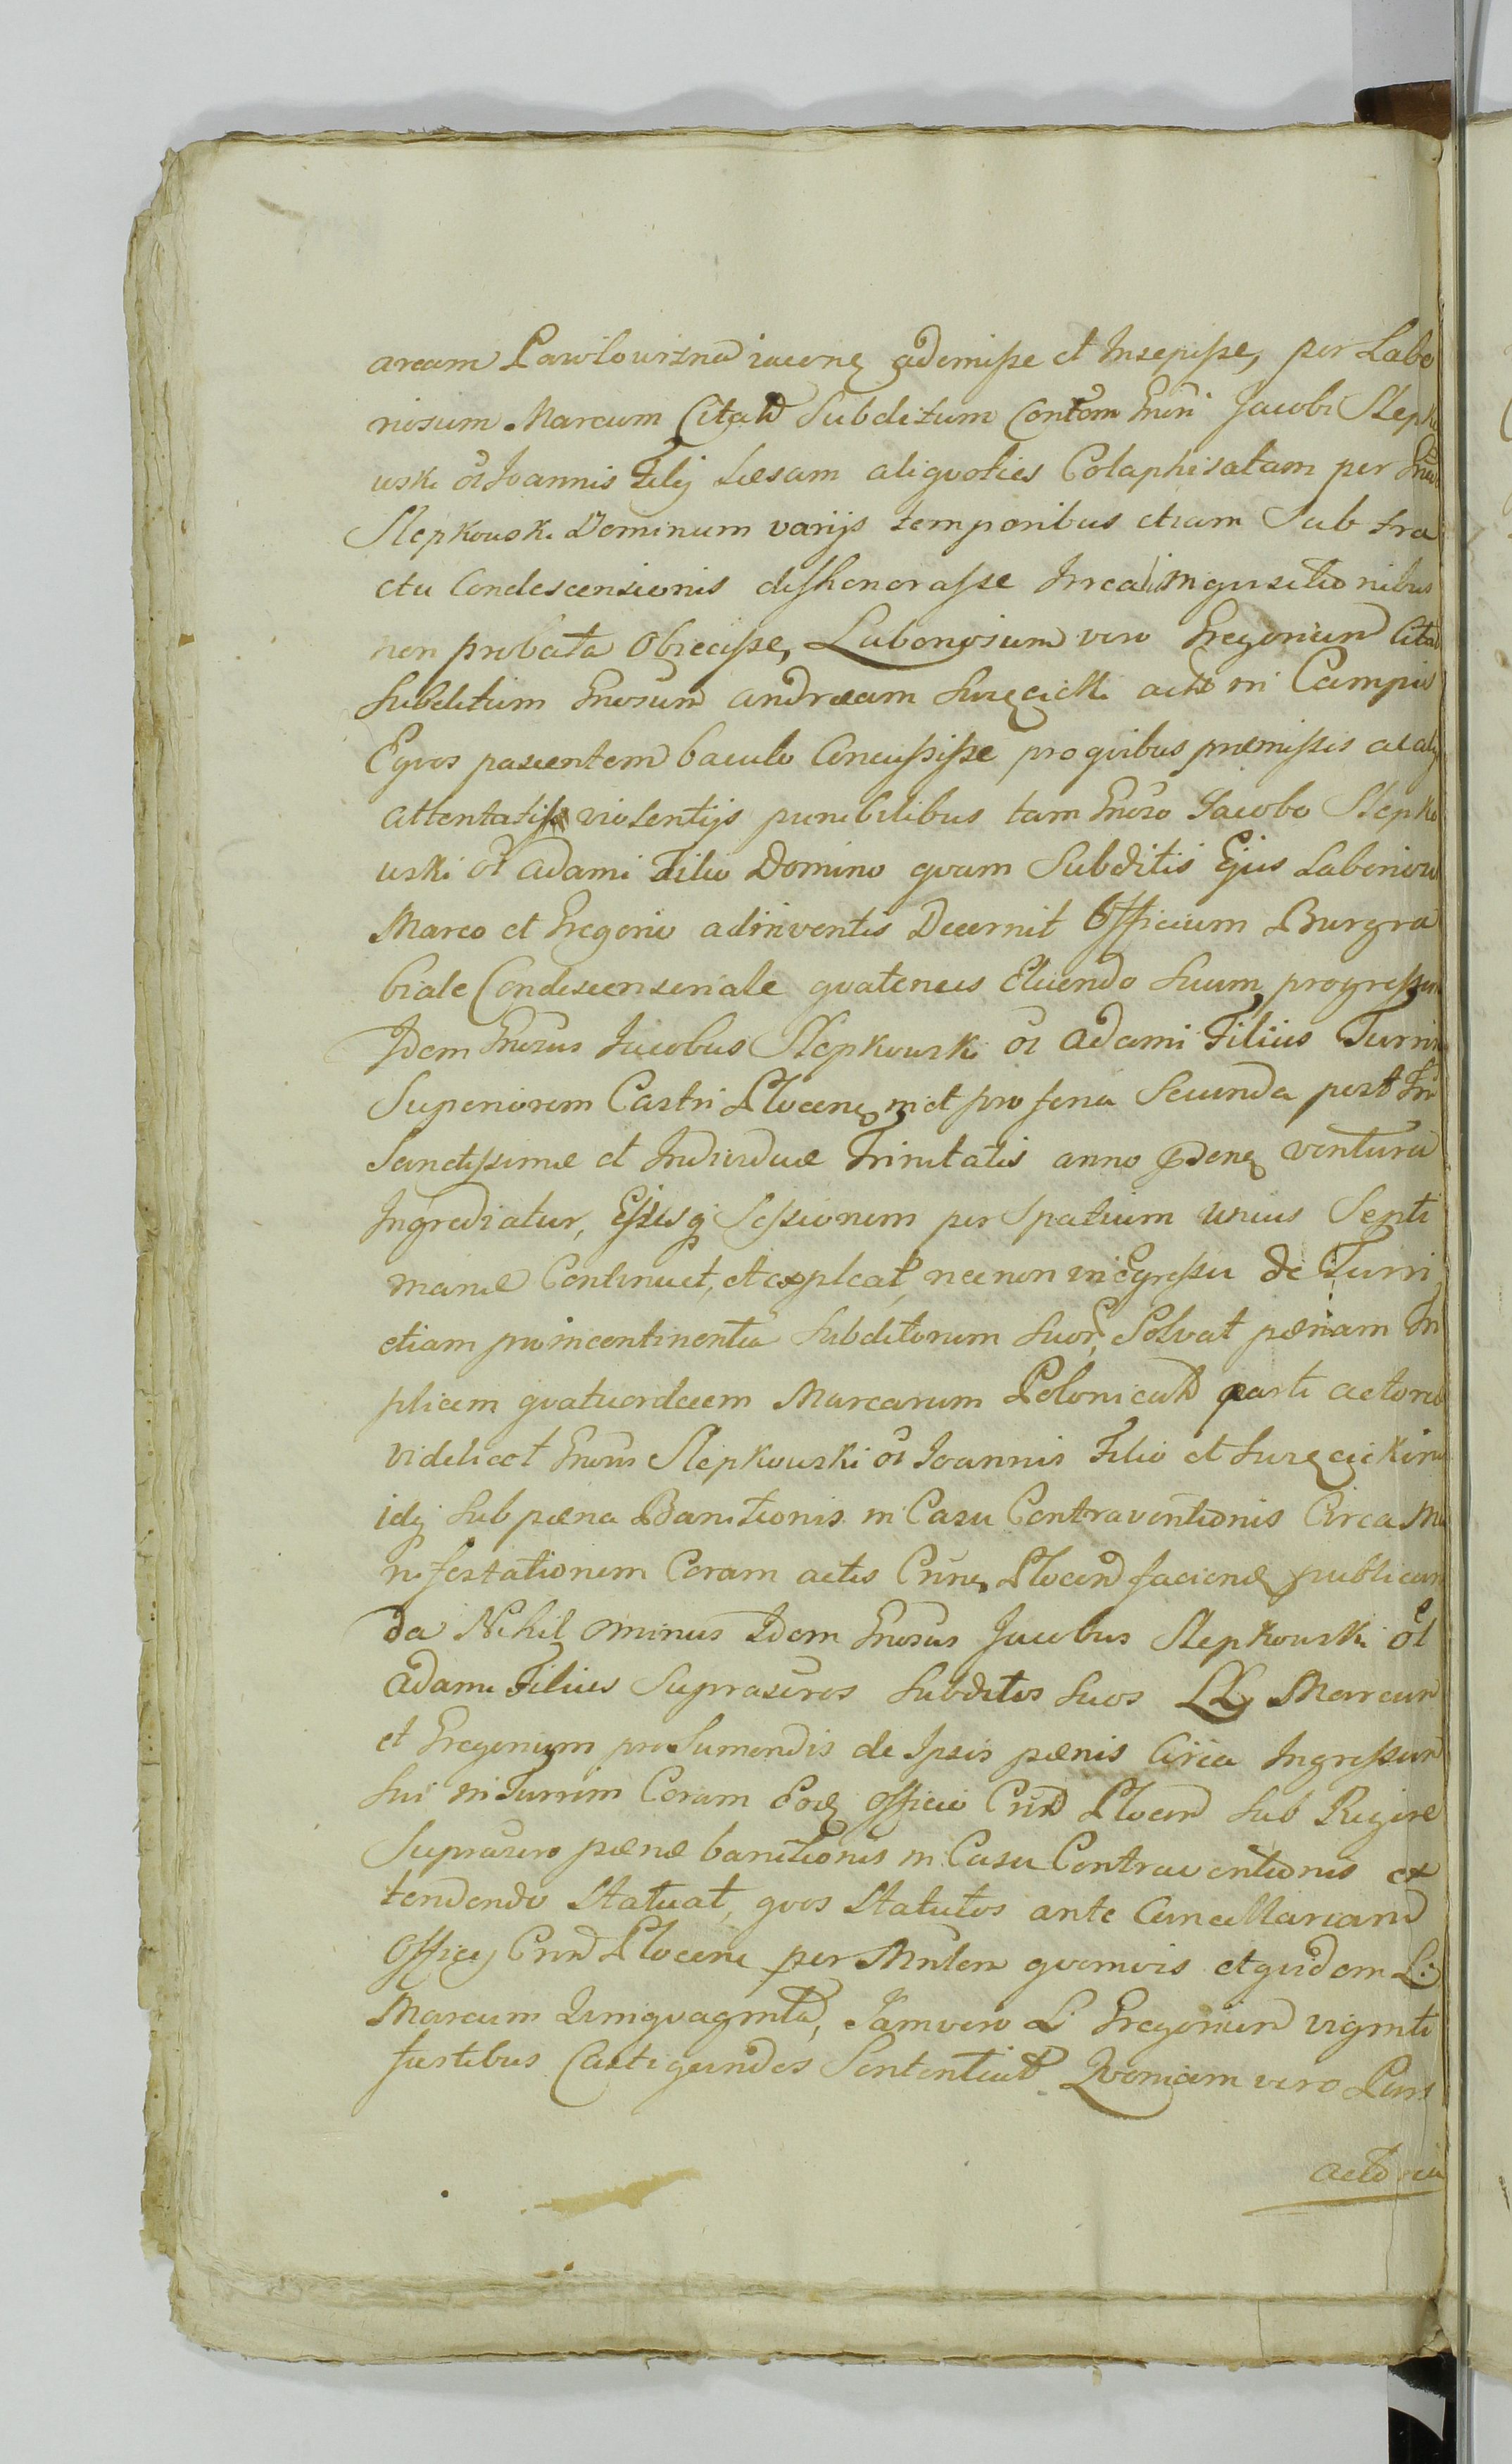 aream Pawłowizna iacenę ademisse et Insepisse, per Labo
riosum Marcum Citatū Subditum Contōm Gnōsi Jacobi Slepko
wski ōl Joannis Filij Læsam aliqvoties Colaphisatam per
Slepkowski Dominum varijs temporibus etiam Sub tra
ctu Condescensionis dishonorasse Irrea inqvisitionibus
non probata Obiecisse, Laboriosum vero Gregorium Citat
Subditum Gnosum Andræam actū in Campis
Eqvos pascentem baculo Concussisse pro qvibus præmissis ac alijs
attentatis violentijs punibilibus tam Gnōso Jacobo Slepko
wski ōl Adami Filio Domino qvam Subditis Ejus Laborioso
Marco et Gregorio adinventis Decernit Officium Burgra
biale Condescensoriale qvatenus Eluendo Suum progressum
Idem Gnosus Jacobus Slepkowski ōl Adami Filius Turrim
Superiorem Castri Plocenę pro feria Secunda post
Sanctissimæ et Individuæ Trinitatis anno ventura
Ingrediatur, Ejusq Sessionem per Spatium unius Septi
manæ Continuet, et expleat, necnon in Egressu de Turri
etiam pro incontinentia Subditorum Suorū Solvat pænam Tri
plicem qvatuordecem Marcarum Polonicalū parti actoreæ
videlicet Gnosis Slepkowski ōl Joannis Filio et
idq Sub pæna Banitionis in Casu Contraventionis Circa Ma
nifestationem Coram actis Plocen faciend publican
da Nihil ominus Idem Gnosus Jacobus Slepkowski ōl
Adami Filius Suprascros Subditos Suos LL Marcum
et Gregorium pro Sumendis de Ipsis pænis Circa Ingressum
Sui in Turrim Coram Eodę officio Plocen Sub Rigore
Suprascro pænæ banitionis in Casu Contraventionis ex
tendendo Statuat, qvos Statutos ante Cancellariam
Officij Plocenę per Mnlem qvemvis et qvidem L:
Marcum Qvinqvaginta, Jamvero L: Gregorium viginti
fustibus Castigandos Sententiat Qvoniam vero Pars
actorea